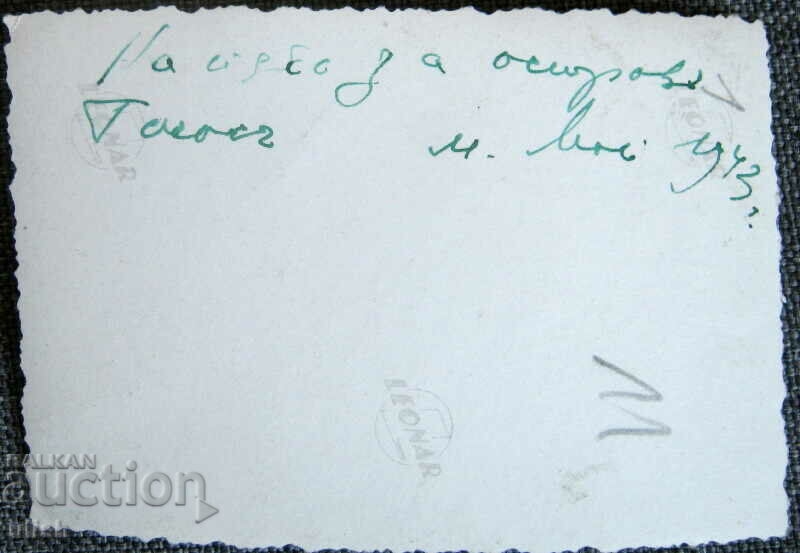 На път за островъ
Тасосъ м. Юли 1943 г.
LEONAR
LEONAR
LEONAR
BALKAN
auction